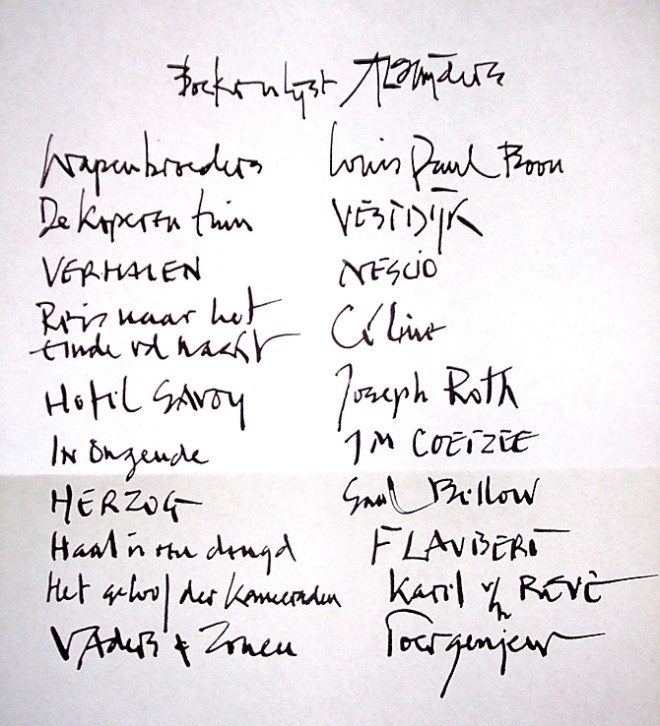 Boekenlijst
Wapenbroeders Louis Paul Boon
De koperen tuin VESTDIJK
VERHALEN NESCIO
Reis naar het
einde vd nacht Céline
Hotel SAVOY Joseph Roth
In ongenade JM COETZEE
HERZOG Saul Bellow
Haat is een deugd FLAUBERT
Het geloof der kameraden Karel v/h REVE
VAders + Zonen Toergenjew